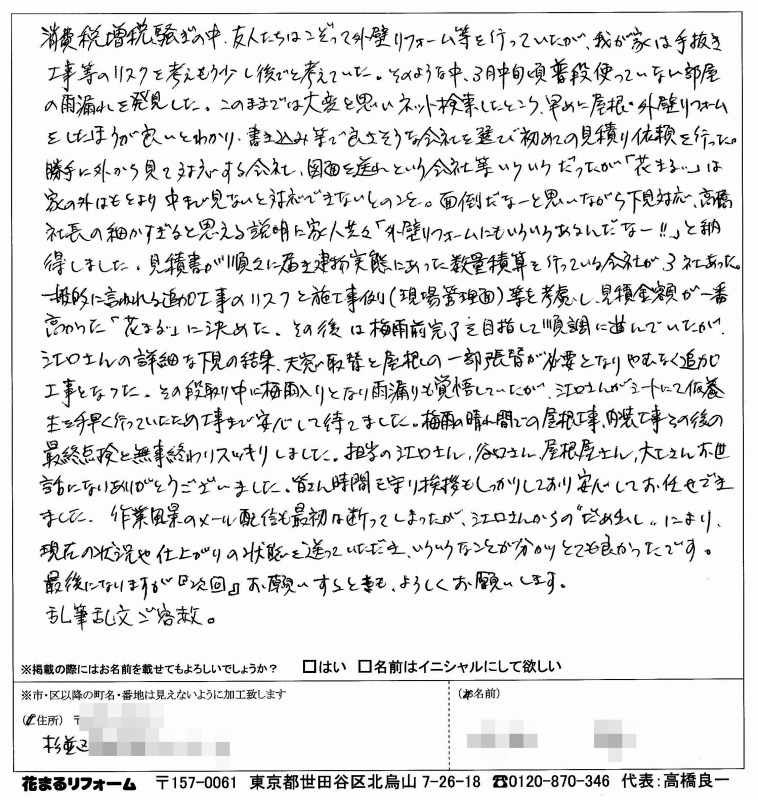 消費税増税騒ぎの中、友人たちはこぞって外壁リフォーム等を行っていたが、我が家は手抜き
工事等のリスクを考えもう少し後でと考えていた。そのような中、3月中旬頃普段使っていない部屋
の雨漏れを発見した。このままでは大変と思いネット検索したところ、早めに屋根・外壁リフォーム
をしたほうが良いとわかり、書き込み等で良さそうな会社を選び初めての見積り依頼を行った。
勝手に外から見て対応する会社、図面を送れという会社等いろいろだったが「花まる」は
家の外はもとより中まで見ないと対応できないとのこと。面倒だなーと思いながら下見対応、高橋
社長の細かすぎると思える説明に家人共々「外壁リフォームにもいろいろあるんだなー!!」と納
得しました。見積書が順々に届き建物実態にあった数量積算を行っている会社が3社あった。
一般的に言われる追加工事のリスクと施工事例(現場管理面)等を考慮し、見積金額が一番
高かった「花まる」に決めた。その後は梅雨前完了を目指して順調に進んでいたが、
江口さんの詳細な下見の結果、天窓取替と屋根の一部張替が必要となりやむなく追加
工事となった。その段取り中に梅雨入りとなり雨漏りも覚悟していたが、江口さんがシートにて仮養
生を手早く行っていたため工事まで安心して待てました。梅雨の晴れ間での屋根工事、内装工事その後の
最終点検と無事終わりスッキリしました。担当の江口さん、谷口さん、屋根屋さん、大工さんお世
話になりありがとうございました。皆さん時間を守り挨拶もしっかりしており安心してお任せでき
ました。作業風景のメール配信も最初は断ってしまったが、江口さんからの"だめ出し"により、
現在の状況や仕上がりの状態を送っていただき、いろいろなことが分かりとても良かったです。
最後になりますが『次回』お願いするときも、よろしくお願いします。
乱筆乱文ご容赦。
※掲載の際にはお名前を載せてもよろしいでしょうか? □はい □名前はイニシャルにして欲しい
※市・区以降の町名・番地は見えないように加工致します
(ご住所) 〒
杉並区
(お名前)
花まるリフォーム 〒157-0061 東京都世田谷区北烏山 7-26-18 ☎0120-870-346 代表:高橋良一